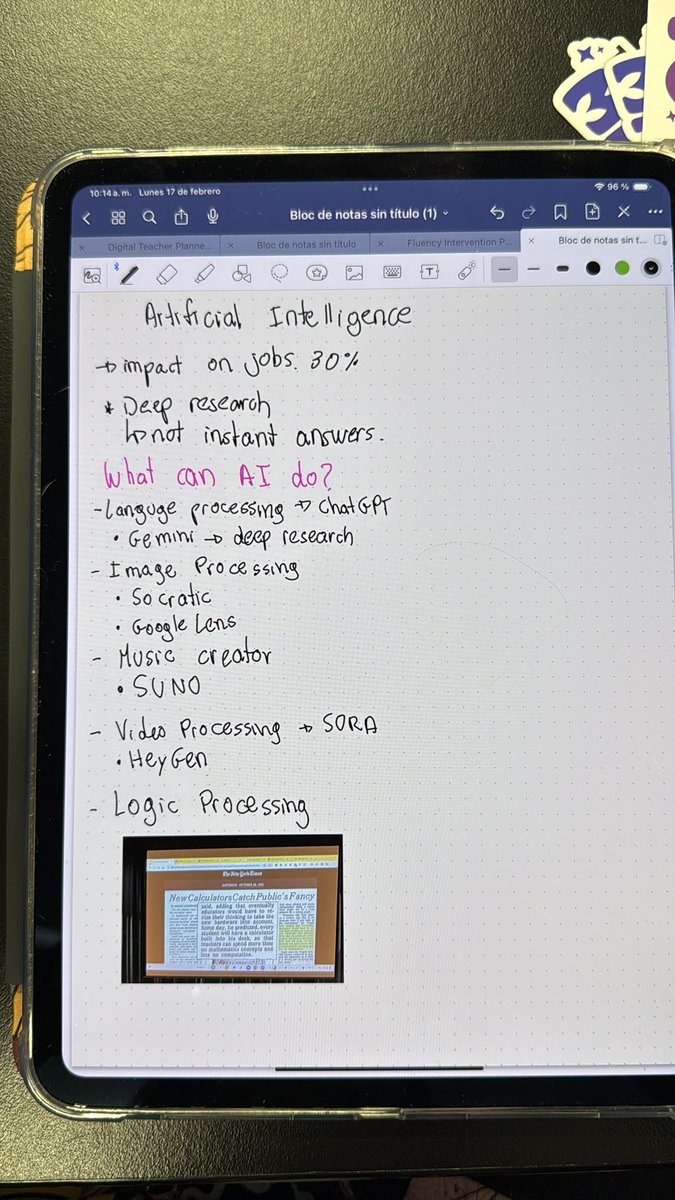 10:14 a.m. Lunes 17 de febrero
96 %
Bloc de notas sin título (1)
Digital Teacher Planne...
Bloc de notas sin título
Fluency Intervention P...
Bloc de notas sin t...
Artificial Intelligence
→ impact on jobs. 30%
* Deep research
↳ not instant answers.
What can AI do?
- Languge processing → ChatGPT
• Gemini → deep research
- Image Processing
• Socratic
• Google Lens
- Music creator
• SUNO
- Video Processing → SORA
• HeyGen
- Logic Processing
The New York Times
New Calculators Catch Public's Fancy
said, adding that eventually
educators would have to re-
vise their thinking to take the
new hardware into account.
Some day, he predicted, every
student will have a calculator
built into his desk, so that
teachers can spend more time
on mathematics concepts and
less on computation.